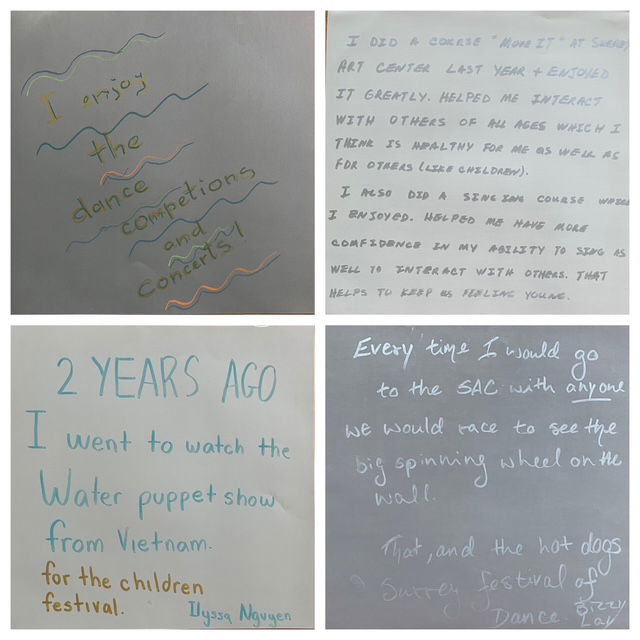 I enjoy
the
dance
competions
and
concerts!
I DID A COURSE "MOVE IT" AT SURREY
ART CENTER LAST YEAR + ENJOYED
IT GREATLY. HELPED ME INTERACT
WITH OTHERS OF ALL AGES WHICH I
THINK IS HEALTHY FOR ME AS WELL AS
FOR OTHERS (LIKE CHILDREN).
I ALSO DID A SINGING COURSE WHICH
I ENJOYED. HELPED ME HAVE MORE
CONFIDENCE IN MY ABILITY TO SING AS
WELL TO INTERACT WITH OTHERS. THAT
HELPS TO KEEP US FEELING YOUNG.
2 YEARS AGO
I went to watch the
Water puppet show
from Vietnam.
for the children
festival.
Ilyssa Nguyen
Every time I would go
to the SAC with anyone
we would race to see the
big spinning wheel on the
wall.
That, and the hot dogs
@ Surrey festival of
Dance.